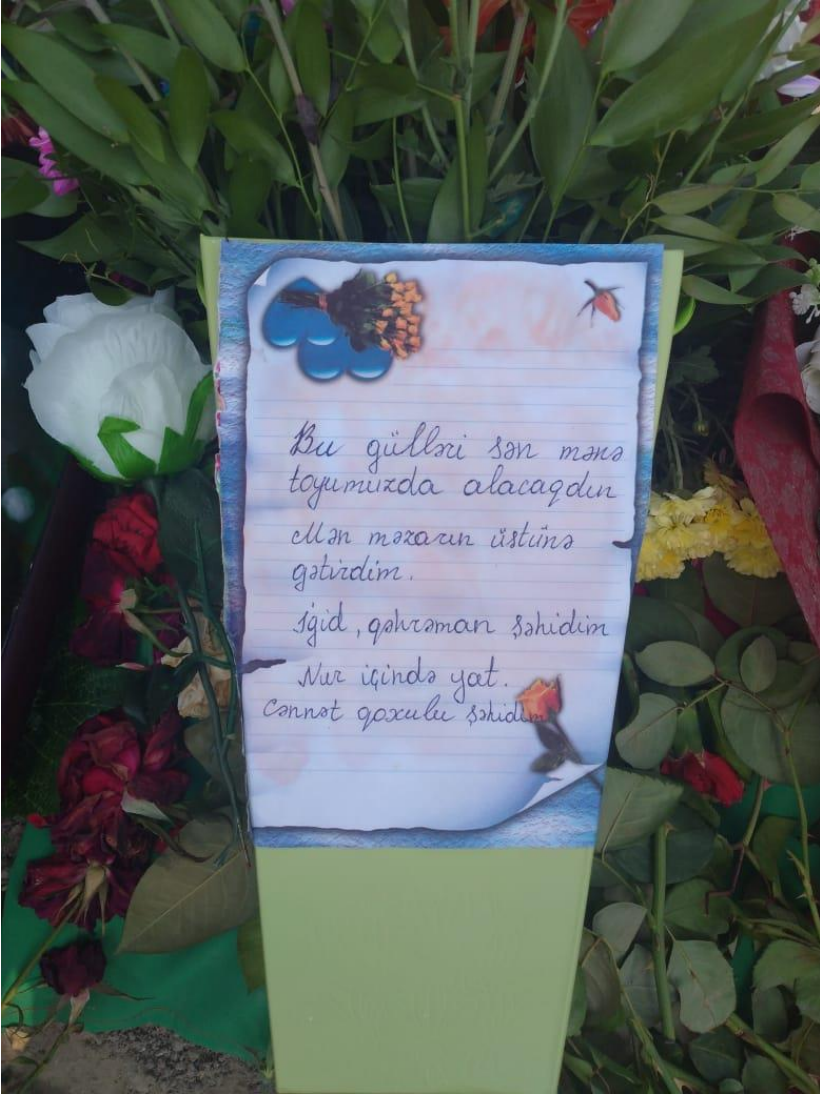 Bu gülləri sən mənə
toyumuzda alacaqdın
Mən məzarın üstünə
gətirdim.
İgid, qəhrəman şəhidim
Nur içində yat.
Cənnət qoxulu şəhidim